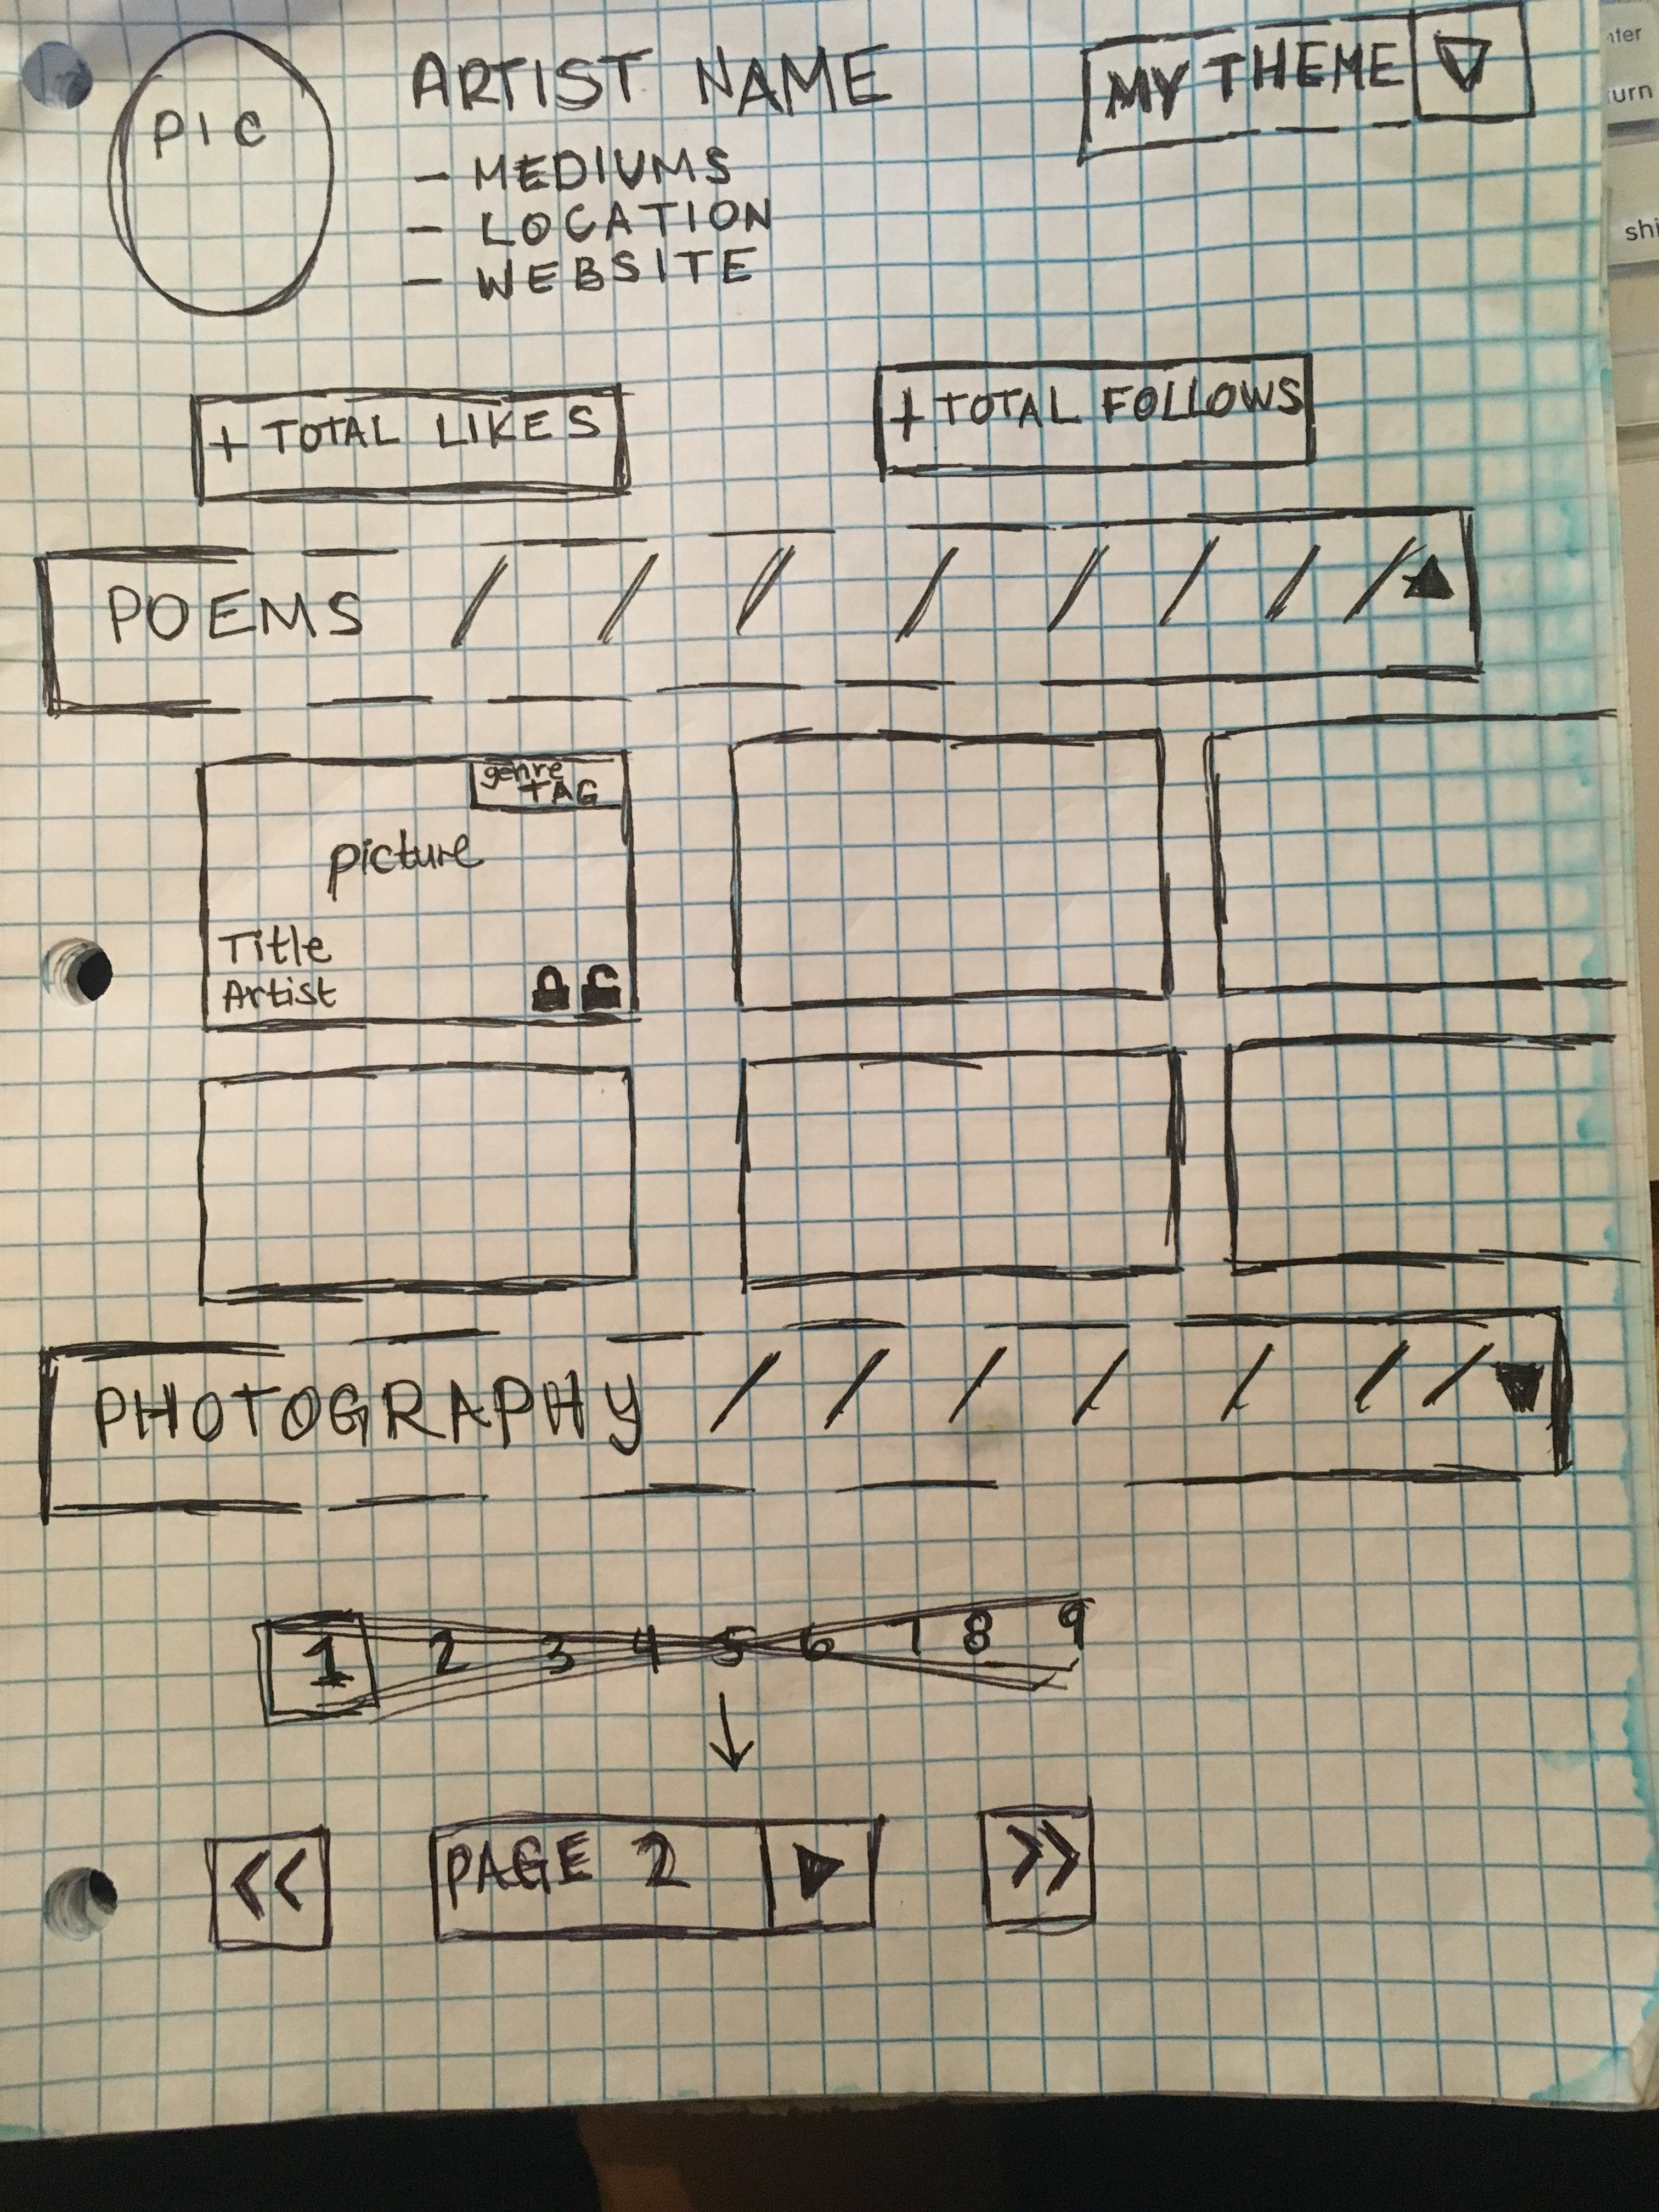 PIC
ARTIST NAME
MY THEME
- MEDIUMS
- LOCATION
- WEBSITE
+ TOTAL LIKES
+ TOTAL FOLLOWS
POEMS
genre
TAG
picture
Title
Artist
PHOTOGRAPHY
1 2 3 4 5 6 7 8 9
<< PAGE 2 >>
shi